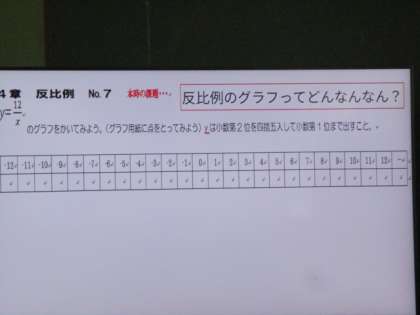 4章 反比例 No.7 本時の課題… 反比例のグラフってどんなんなん？
y=12/x
のグラフをかいてみよう。(グラフ用紙に点をとってみよう) yは小数第2位を四捨五入して小数第1位まで出すこと。
-12 -11 -10 -9 -8 -7 -6 -5 -4 -3 -2 -1 0 1 2 3 4 5 6 7 8 9 10 11 12 ～